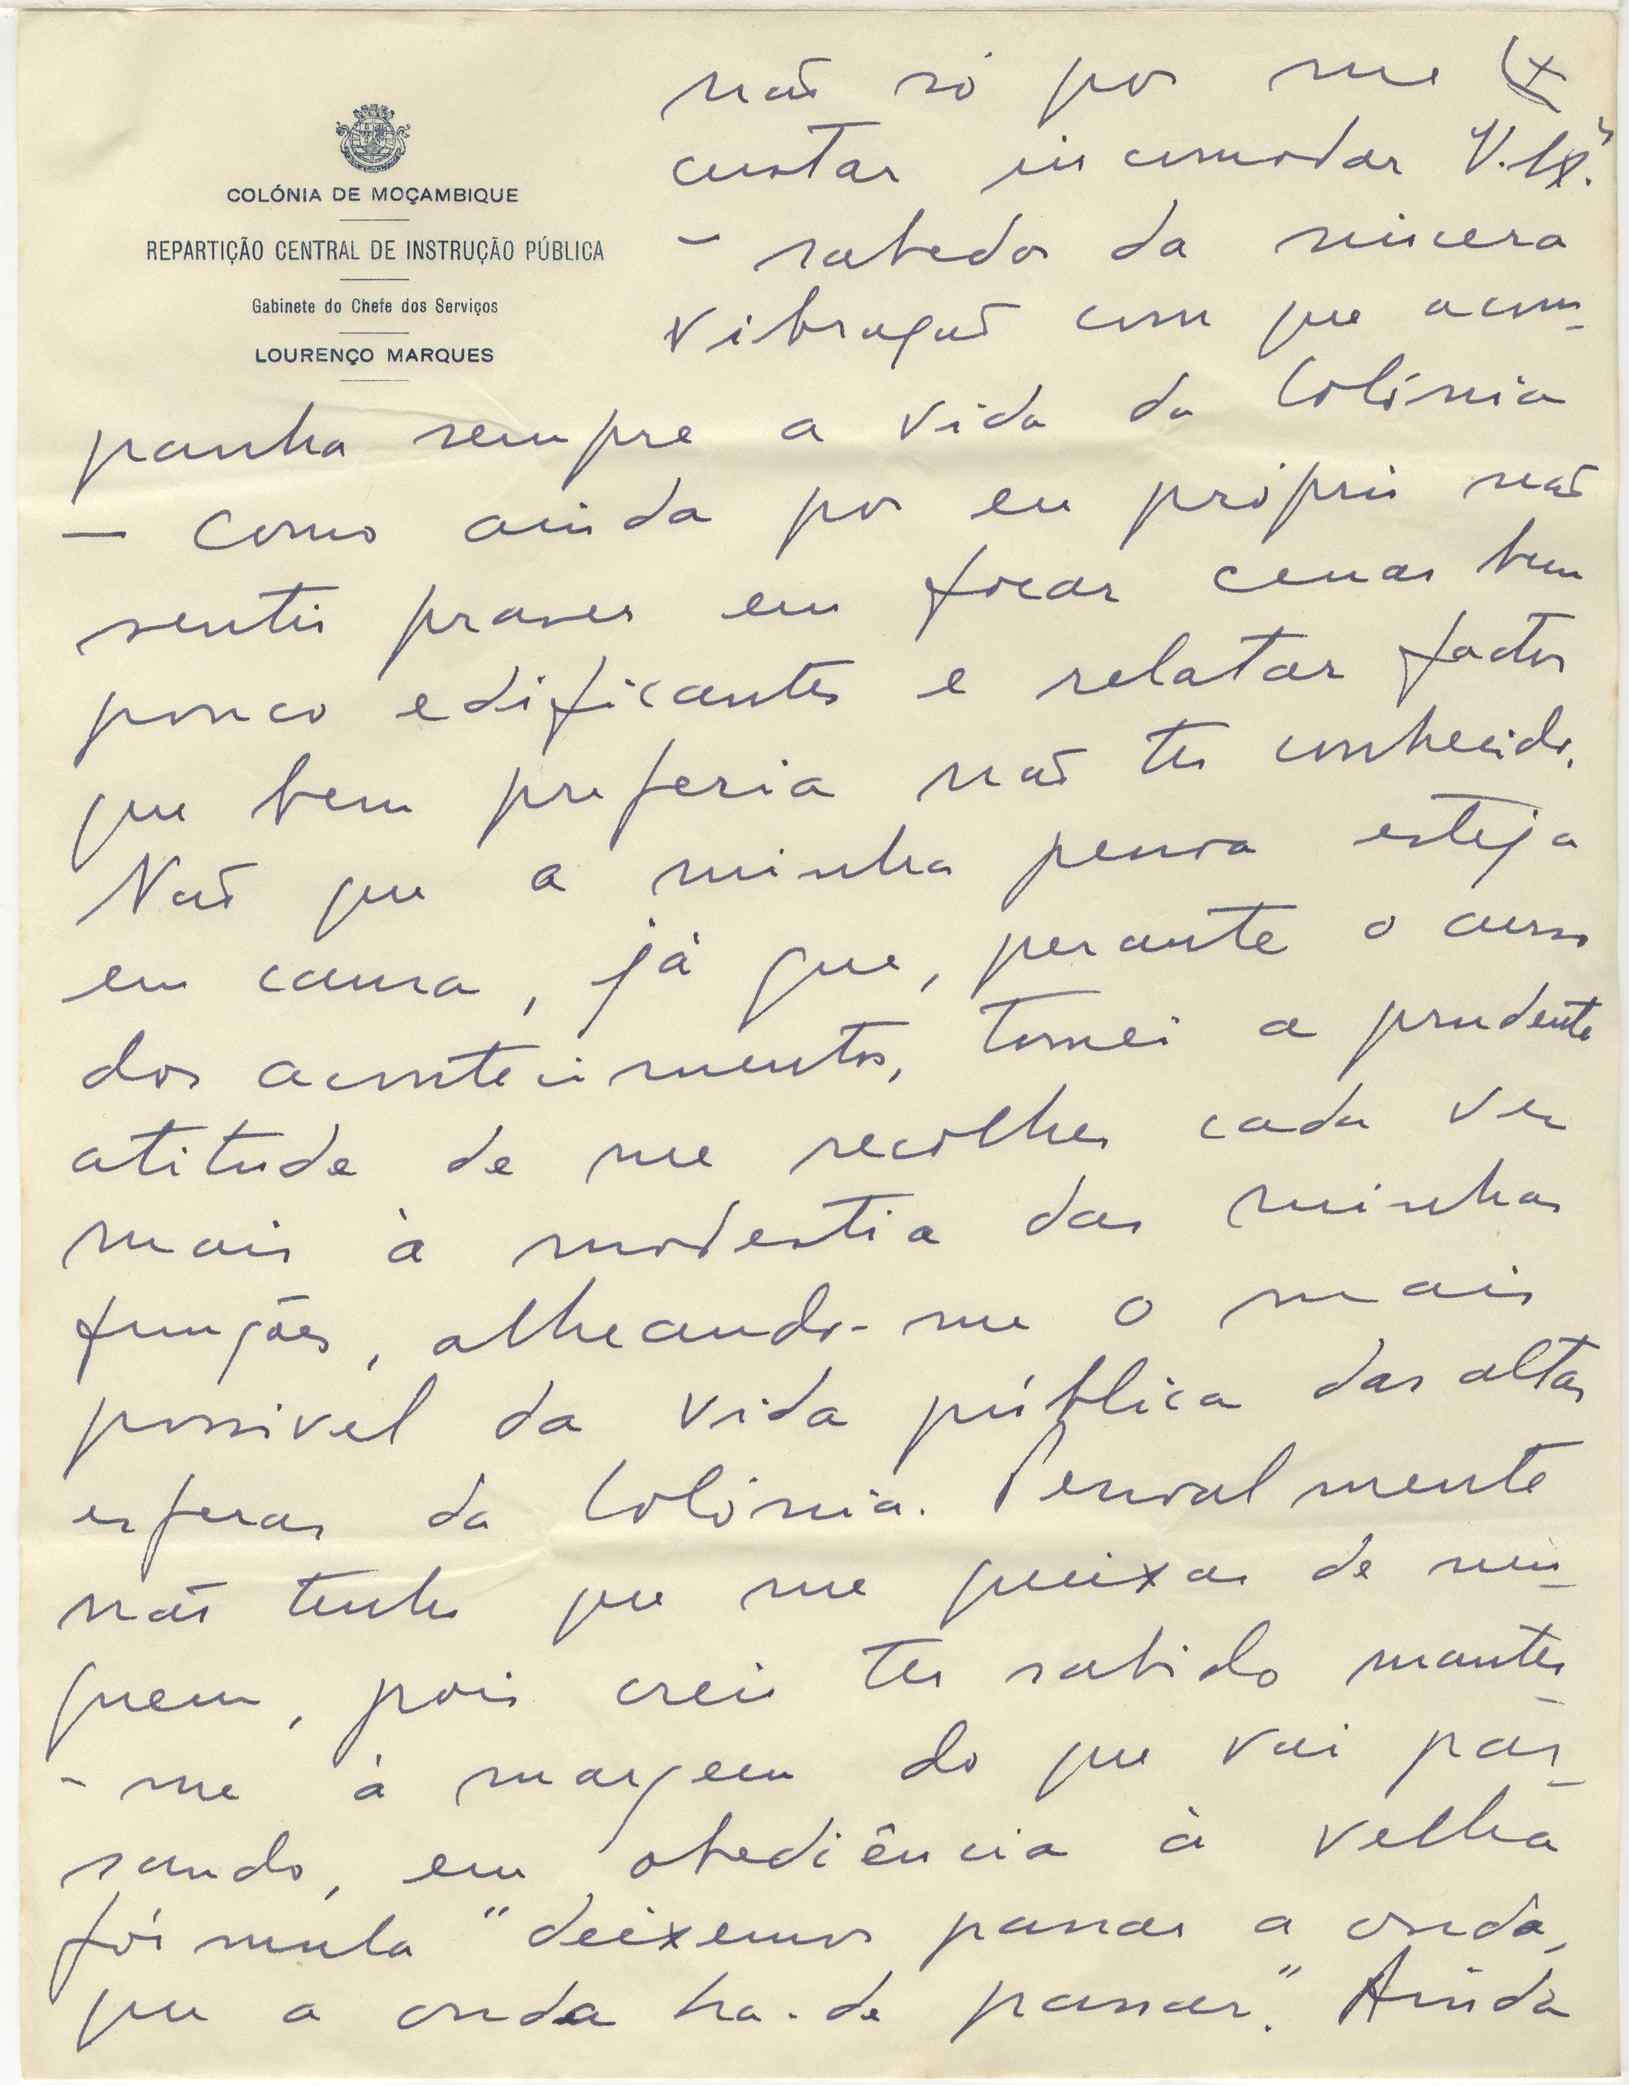 COLÓNIA DE MOÇAMBIQUE
REPARTIÇÃO CENTRAL DE INSTRUÇÃO PÚBLICA
Gabinete do Chefe dos Serviços
LOURENÇO MARQUES
não só por me
custar incomodar V. Ex.ª
- sabedor da sincera
vibração com que acom-
panha sempre a vida da Colónia
- como ainda por eu próprio não
sentir prazer em focar cenas bem
pouco edificantes e relatar factos
que bem preferia não ter conhecido.
Não que a minha pessoa esteja
em causa, já que, perante o curso
dos acontecimentos, tomei a prudente
atitude de me recolher cada vez
mais à modestia das minhas
funções, alheando-me o mais
possivel da vida pública das altas
esferas da Colónia. Pessoalmente
não tenho que me queixar de nin-
guem, pois creio ter sabido manter-
-me à margem do que vai pas-
sando, em obediência à velha
fórmula "deixemos passar a onda,
que a onda ha-de passar." Ainda